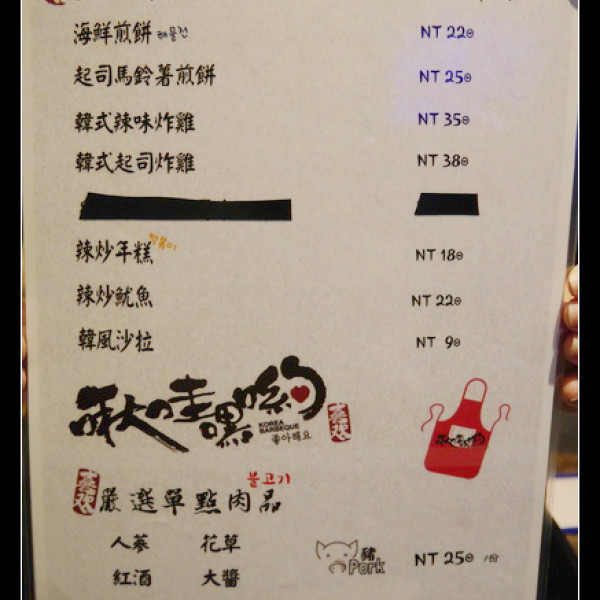 海鮮煎餅 해물전 NT 220
起司馬鈴薯煎餅 NT 250
韓式辣味炸雞 NT 350
韓式起司炸雞 NT 380
辣炒年糕 떡볶이 NT 180
辣炒魷魚 NT 220
韓風沙拉 NT 90
啾哇黑喲
KOREA
BARBEQUE
좋아해요
喜歡
啾哇黑喲
불고기
喜歡 嚴選單點肉品
人蔘 花草
豬 Pork NT 250 /份
紅酒 大醬